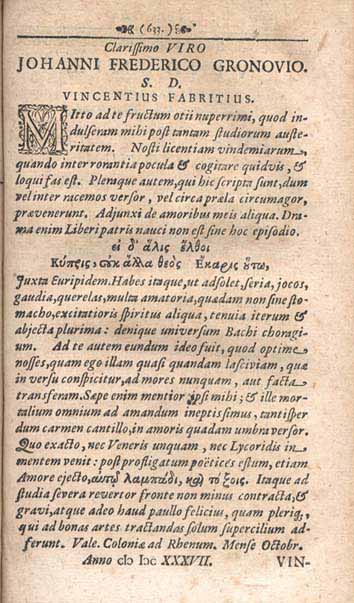 (633.)
Clarissimo VIRO
JOHANNI FREDERICO GRONOVIO.
S. D.
VINCENTIUS FABRITIUS.
MItto ad te fructum otii nuperrimi, quod in-
dulseram mihi post tantam studiorum auste-
ritatem. Nosti licentiam vindemiarum,
quando inter rorantia pocula & cogitare quidvis, &
loqui fas est. Pleraque autem, qui hic scripta sunt, dum
vel inter racemos versor, vel circa præla circumagor,
prævenerunt. Adjunxi de amoribus meis aliqua. Dra-
ma enim Liberi patris nauci non est sine hoc episodio.
εἰ δ' ἅλις ἔλθοι
Κύπρις, οὐκ ἄλλα θεὸς Εὔχαρις οὕτω,
Juxta Euripidem. Habes itaque, ut adsolet, seria, jocos,
gaudia, querelas, multa amatoria, quædam non sine sto-
macho, excitatioris spiritus aliqua, tenuia iterum &
abjecta plurima: denique universum Bachi choragi-
um. Ad te autem eundum ideo fuit, quod optime
nosses, quam ego illam quasi quandam lasciviam, quæ
in versu conspicitur, ad mores nunquam, aut facta
transferam. Sæpe enim mentior ipsi mihi; & ille mor-
talium omnium ad amandum ineptissimus, tantisper
dum carmen cantillo, in amoris quadam umbra versor.
Quo exacto, nec Veneris unquam, nec Lycoridis in
mentem venit: post profligatum poëtices æstum, etiam
Amore ejecto, αὐτῷ λαμπάδι, καὶ τόξοις. Itaque ad
studia severa revertor fronte non minus contracta, &
gravi, atque adeo haud paullo felicius, quam pleriq,,
qui ad bonas artes tractandas solum supercilium ad-
ferunt. Vale. Coloniæ ad Rhenum. Mense Octobr.
Anno cIɔ Iɔc XXXVII. VIN-